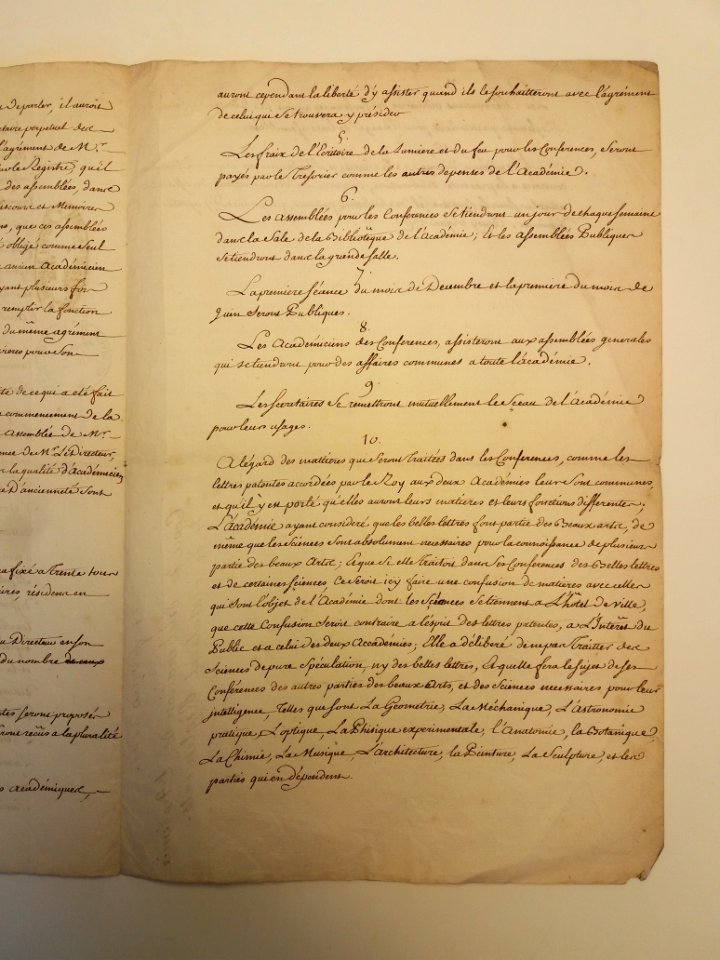 y deparler, il auroit
l'agrément de Mr.
sur le Registre, qu'il
des assemblées, dans
discours et Memoires
ns, que ces assemblées
obligé comme seul
ancien Académicien
ayant plusieurs fois
remplir la fonction
du même agrément
pour son
té de ce qui a eté fait
commencement de la
assemblée de Mr.
nce de Mr. Le Directeur,
r la qualité d'académicien
D'ancienneté sont
fixé a Trente tous
res, résidens en
u Directeur en son
du nombre
tes seront proposés
seront reçus a la pluralité
s académiques,
auront cépendant la liberté d'y assister quand ils le souhaitteront avec l'agrément
de celui qui se trouvera y présider
5.
Les fraix de l'écritoire de la Lumiere et du feu pour les Conferences, seront
payés par le Tresorier comme les autres depenses de l'Académie.
6.
Les assemblées pour les Conferences se tiendront un jour de chaque semaine
dans la sale de la Bibliotëque de l'académie; Et les assemblées Publiques
se tiendront dans la grande salle.
7.
La premiere séance du mois de Decembre et la premiere du mois de
Juin seront Publiques.
8.
Les Académiciens des Conferences, assisteront aux assemblées generales
qui se tiendront pour des affaires communes a toute l'académie.
9.
Les secretaires se remettront mutuellement le sceau de l'Académie
pour leurs usages.
10.
A légard des mattieres que seront Traitées dans les Conferences, comme les
lettres patentes accordées par le Roy aux deux Académies leur sont communes
et qu'il y est porté qu'elles auront leurs matieres et leurs fonctions differentes,
L'académie ayant consideré que les belles lettres font partie des Beaux arts, de
même que les sciences sont absolument necessaires pour la connoissance de plusieurs
partie des beaux Arts; Et que si elle Traitoit dans ses Conferences des Belles lettres
et de certaines sciences, Ce seroit icy faire une confusion de matieres avec celles
qui sont l'objet de l'Académie dont les sciences se tiennent a L'hôtel de ville,
que cette Confusion seroit contraire a l'espit des lettres patentes, a L'Interêt du
Public et a celui des deux Accadémies; Elle a déliberé de n'pas Traitter des
sciences de pure spéculation, ny des belles lettres, Et quelle fera le sujet de ses
Conférences des autres parties des beaux Arts, et des sciences necessaires pour leur
intelligence, Telles que sont La Geometrie, La Méchanique, L'Astronomie
pratique, L'optique, La Phisique experimentale, l'Anatomie, la Botanique,
La Chimie, La Musique, L'architecture, la Peinture, La sculpture, et les
parties qui en dépendent.